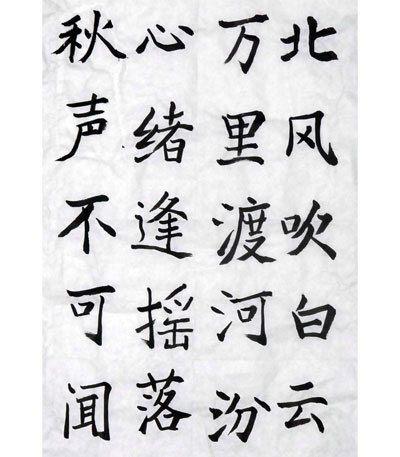 北风吹白云
万里渡河汾
心绪逢摇落
秋声不可闻